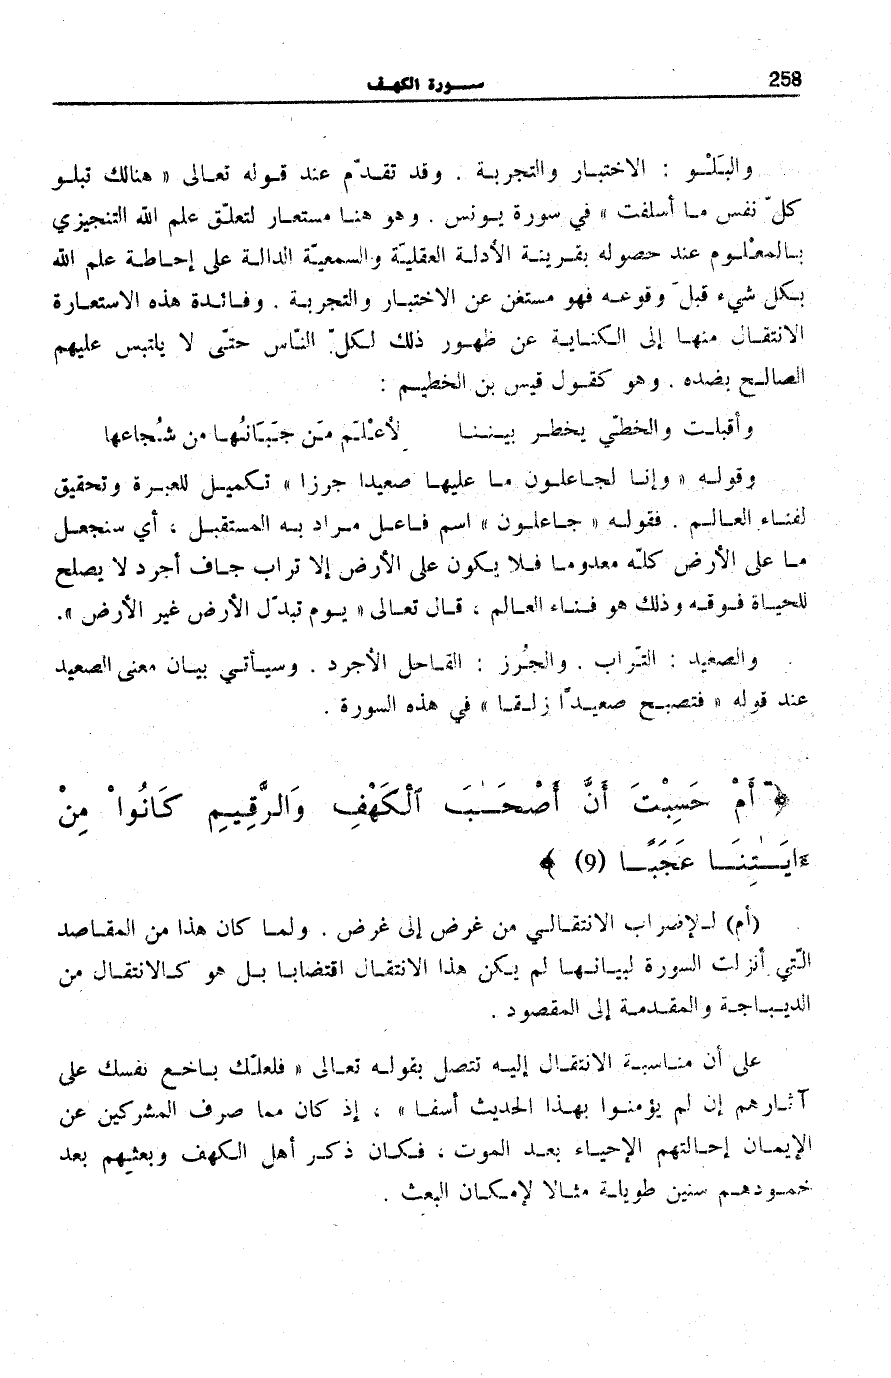 258
سورة الكهف
والبَلْو : الاختبار والتجربة . وقد تقدّم عند قوله تعالى « هنالك تبلو
كلّ نفس ما أسلفت » في سورة يونس . وهو هنا مستعار لتعلّق علم الله التنجيزي
بالمعْلوم عند حصوله بقرينة الأدلة العقليّة والسمعيّة الدالة على إحاطة علم الله
بكل شيء قبل وقوعه فهو مستغن عن الاختبار والتجربة . وفائدة هذه الاستعارة
الانتقال منها إلى الكناية عن ظهور ذلك لكلّ النّاس حتّى لا يلتبس عليهم
الصالح بضده . وهو كقول قيس بن الخطيم :
وأقبلت والخطّي يخطر بيننا لأعْلَم مَن جَبَانُها من شُجاعها
وقوله « وإنا لجاعلون ما عليها صعيدا جرزا » تكميل للعبرة وتحقيق
لفناء العالم . فقوله « جاعلون » اسم فاعل مراد به المستقبل ، أي سنجعل
ما على الأرض كلّه معدوما فلا يكون على الأرض إلا تراب جاف أجرد لا يصلح
للحياة فوقه وذلك هو فناء العالم ، قال تعالى « يوم تبدّل الأرض غير الأرض ».
والصعيد : التّراب . والجُرز : القاحل الأجرد . وسيأتي بيان معنى الصعيد
عند قوله « فتصبح صعيدًا زلقا » في هذه السورة .
﴿ أَمْ حَسِبْتَ أَنَّ أَصْحَٰبَ ٱلْكَهْفِ وَالرَّقِيمِ كَانُواْ مِنْ
ءايَٰتِنَا عَجَبًا (9) ﴾
(أم) للإضراب الانتقالي من غرض إلى غرض . ولما كان هذا من المقاصد
الّتي أنزلت السورة لبيانها لم يكن هذا الانتقال اقتضابا بل هو كالانتقال من
الديباجة والمقدمة إلى المقصود .
على أن مناسبة الانتقال إليه تتصل بقوله تعالى « فلعلّك باخع نفسك على
آثارهم إن لم يؤمنوا بهذا الحديث أسفا » ، إذ كان مما صرف المشركين عن
الإيمان إحالتهم الإحياء بعد الموت ، فكان ذكر أهل الكهف وبعثهم بعد
خمودهم سنين طويلة مثالا لإمكان البعث .